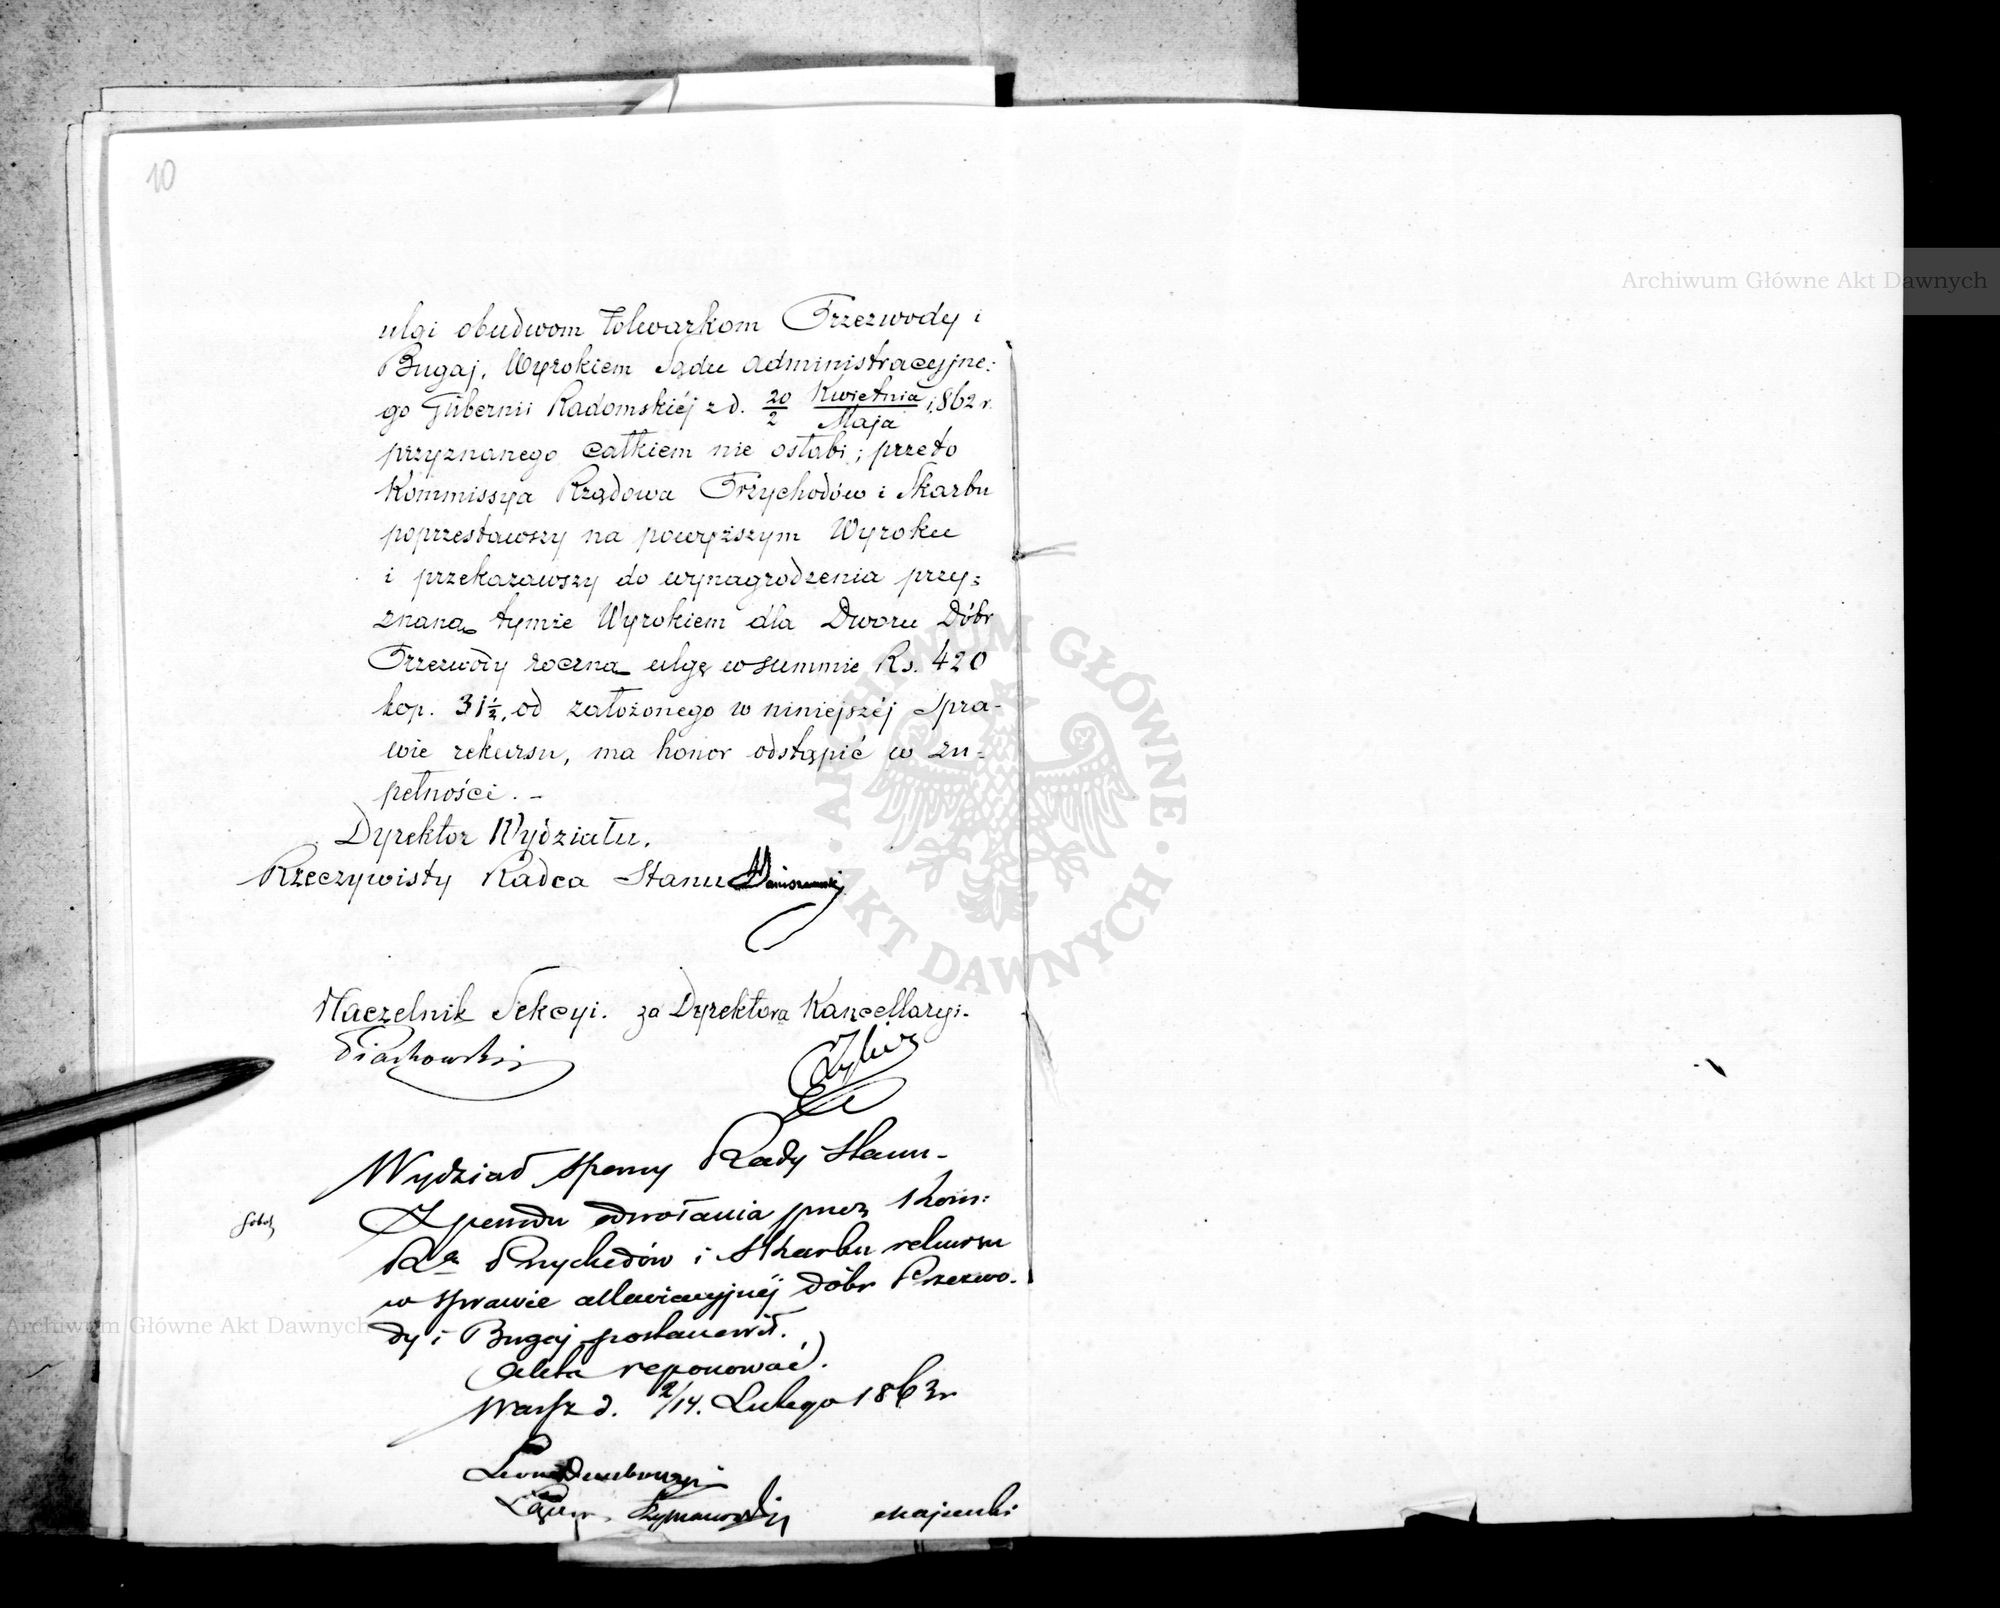 10
ulgi obudwom folwarkom Przezwody i
Bugaj, Wyrokiem Sądu Administracyjne:
go Gubernii Radomskiéj z d. 20/2 Kwietnia/Maja 1862 r.
przyznanego całkiem nie osłabi; przeto
Kommissya Rządowa Przychodów i Skarbu
poprzestawszy na powyższym Wyroku
i przekazawszy do wynagrodzenia przy=
znaną tymże Wyrokiem dla Dworu Dóbr
Przezwody roczną ulgę w summie Rs. 420
kop. 31½, od założonego w niniejszéj spra-
wie rekursu, ma honor odstąpić w zu-
pełności. -
Dyrektor Wydziału.
Rzeczywisty Radca Stanu
Naczelnik Sekcyi. za Dyrektora Kancellaryi.
Piaskowski
Wydział Sporny Rady Stanu -
Z powodu odwołania przez Kom:
Rą Przychodów i Skarbu rekursu
w sprawie alluwiacyjnéj dóbr Przezwo-
dy i Bugaj postanowił.
(akta reponować).
Warsz d. 2/14. Lutego 1863 r
Leon Dembowski
Szymanowski Majewski
ARCHIWUM GŁÓWNE · AKT DAWNYCH ·
Archiwum Główne Akt Dawnych
Archiwum Główne Akt Dawnych